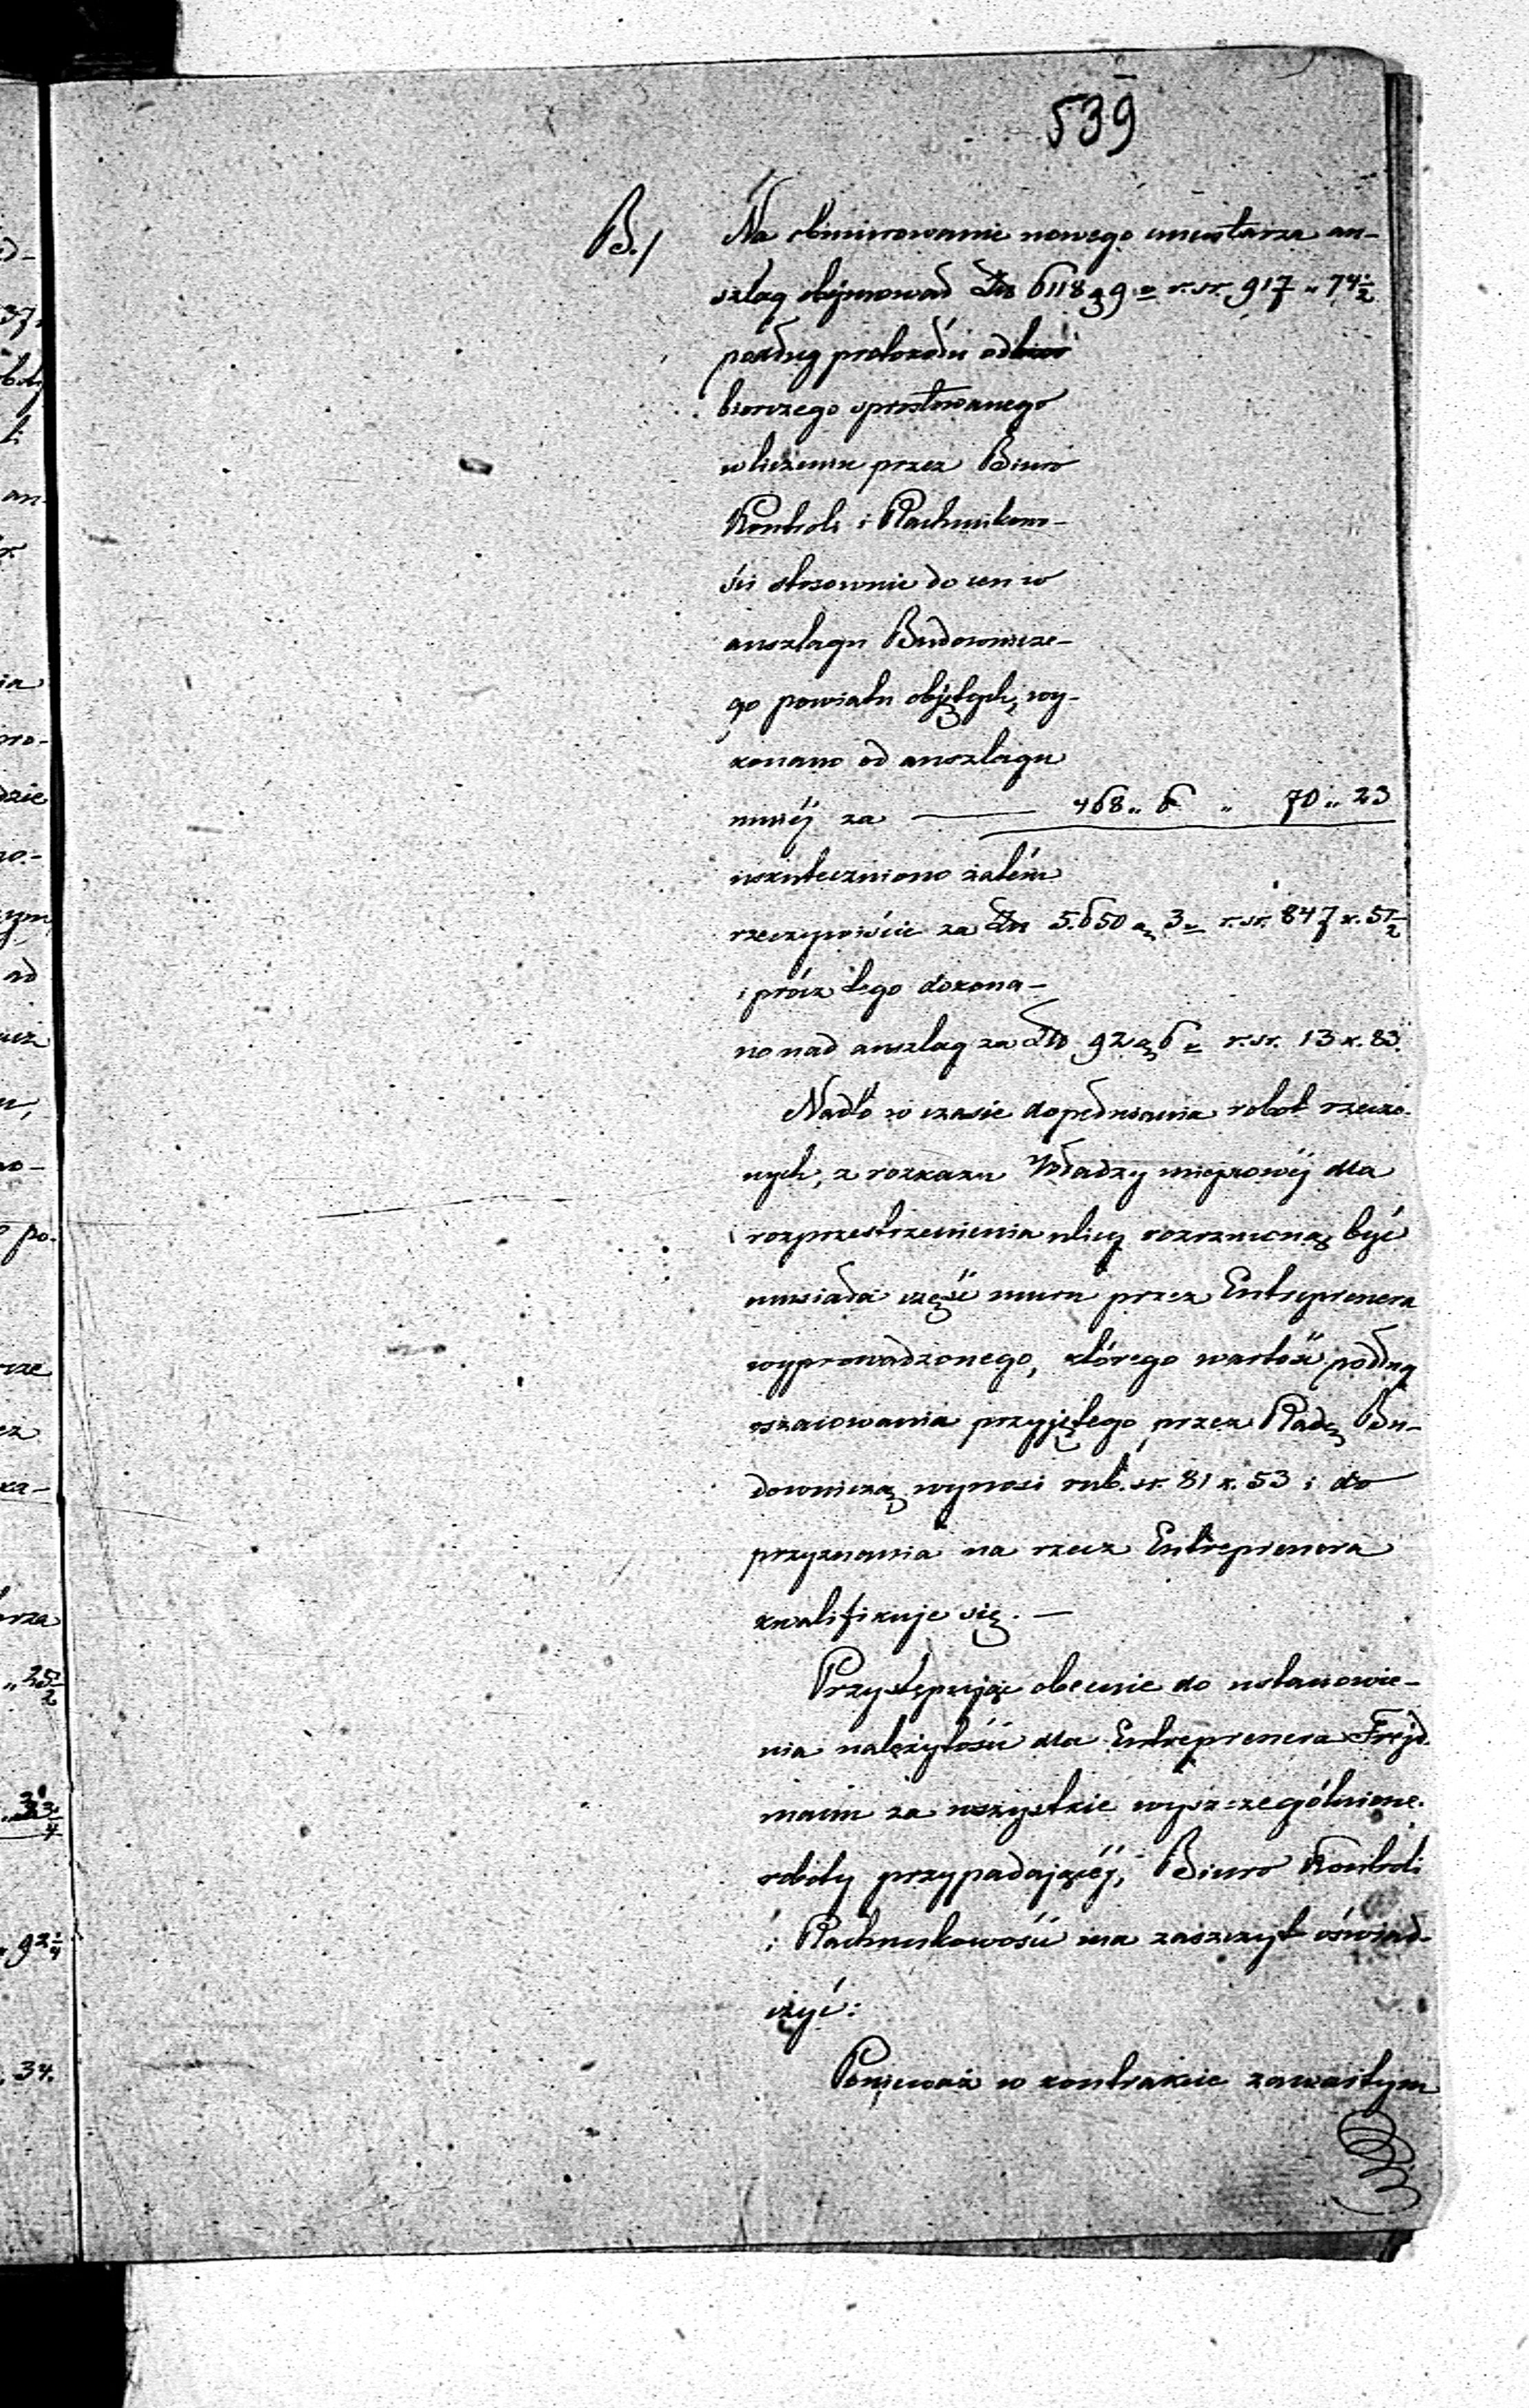 539
B./ Na obmurowanie nowego cmentarza an-
szlag obejmował Złp 6118 g 9 r.sr. 917 „ 74½
podług protokółu od
biorczego sprostowanego
w liczeniu przez Biuro
Kontroli i Rachunkowo-
ści stosownie do cen w
anszlagu Budownicze-
go powiatu objętych, wy-
konano od anszlagu
mniéj za — 468 „ 6 „ 70 „ 23
uskuteczniono zatém
rzeczywiście za Złp 5.650 g 3 r.sr. 847 k. 51½
i prócz tego dokona-
no nad anszlag za Złp 92 g 6 r.sr. 13 k. 83.
Nadto w czasie dopełniania robot rzeczo-
nych, z rozkazu Władzy miejscowéj dla
rozprzestrzenienia ulicy rozrzuconą być
musiała część muru przez Entreprenera
wyprowadzonego, którego wartość podług
oszacowania przyjętego przez Radę Bu-
downiczą wynosi rub. sr. 81 k. 53 i do
przyznania na rzecz Entreprenera
kwalifikuje się. —
Przystępując obecnie do ustanowie-
nia należytości dla Entreprenera Frejd-
mann za wszystkie wyszczególnione
roboty przypadającéj, Biuro Kontroli
i Rachunkowości ma zaszczyt oświad-
czyć:
Ponieważ w kontrakcie zawartym